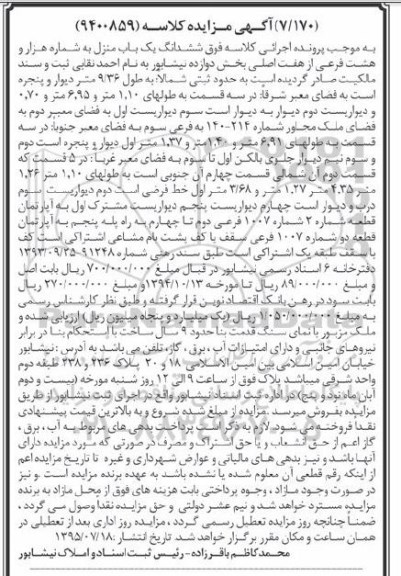 (۷/۱۷۰) آگهی مزایده کلاسه (۹۴۰۰۸۵۹)
به موجب پرونده اجرائی کلاسه فوق ششدانگ یک باب منزل به شماره هزار و
هشت فرعی از هفت اصلی بخش دوازده نیشابور به نام احمد نقابی ثبت و سند
مالکیت صادر گردیده است به حدود ثبتی شمالا: به طول ۹/۳۶ متر دیوار و پنجره
است به فضای معبر شرقا: در سه قسمت به طولهای ۱,۱۰ متر و ۶,۹۵ متر و ۰,۷۰
و دیواریست دوم دیوار به دیوار است سوم دیواریست اول به فضای معبر دوم به
فضای ملک مجاور شماره ۲۱۴-۱۴۰۰ به فرعی سوم به فضای معبر جنوبا: در سه
قسمت به طولهای ۶,۹۱ متر و ۱,۴۰ متر و ۱,۳۷ متر اول دیوار و پنجره است دوم
و سوم نیم دیوار جلوی بالکن اول تا سوم به فضای معبر غربا: در ۵ قسمت که
قسمت دوم آن شمالی قسمت چهارم آن جنوبی است به طولهای ۱,۱۰ متر ۱,۲۶
متر ۴,۳۵ متر ۱,۲۷ متر و ۳/۶۸ متر اول خط فرضی است دوم دیواریست سوم
درب و دیوار است چهارم دیواریست پنجم دیواریست مشترک اول به آپارتمان
قطعه شماره ۳ شماره ۱۰۰۷ فرعی دوم تا چهارم به راه پله پنجم به آپارتمان
قطعه دو شماره ۱۰۰۷ فرعی سقف با کف پشت بام مشاعی اشتراکی است کف
با سقف طبقه یک اشتراکی است طبق سند رهنی شماره ۹۱۲۴۸-۱۳۹۳/۰۹/۲۵
دفترخانه ۶ اسناد رسمی نیشابور در قبال مبلغ ۷۰۰/۰۰۰/۰۰۰ ریال بابت اصل
و مبلغ ۸۹/۰۰۰/۰۰۰ ریال تا مورخه ۱۳۹۴/۱۰/۱۳ و مبلغ ۲۷۰/۰۰۰/۰۰۰ ریال
بابت سود در رهن بانک اقتصاد نوین قرار گرفته و طبق نظر کارشناس رسمی
به مبلغ ۱/۰۵۰/۰۰۰/۰۰۰ ریال (یک میلیارد و پنجاه میلیون ریال) ارزیابی شده و
ملک مزبور با نمای سنگ قدمت بنا حدود ۹ سال ساخت با استحکام بنا در برابر
نیروهای جانبی و دارای امتیازات آب، برق، گاز، تلفن می باشد به آدرس: نیشابور
خیابان امین اسلامی بین امین الاسلامی ۱۸ و ۲۰ پلاک ۲۳۶ و ۲۳۸ طبقه دوم
واحد شرقی میباشد پلاک فوق از ساعت ۹ الی ۱۲ روز شنبه مورخه (بیست و دوم
آبان ماه نود و پنج) در اداره ثبت اسناد نیشابور واقع در اجرای ثبت نیشابور از طریق
مزایده بفروش میرسد. مزایده از مبلغ شده شروع و به بالاترین قیمت پیشنهادی
نقدا فروخته می شود لازم به ذکر است پرداخت بدهی های مربوط به آب، برق،
گاز اعم از حق انشعاب و یا حق اشتراک و مصرف در صورتی که مورد مزایده دارای
آنها باشد و نیز بدهی های مالیاتی و عوارض شهرداری و غیره تا تاریخ مزایده اعم
از اینکه رقم قطعی آن معلوم شده یا نشده باشد به عهده برنده مزایده است. و نیز
در صورت وجود مازاد، وجوه پرداختی بابت هزینه های فوق از محل مازاد به برنده
مزایده مسترد خواهد شد و نیم عشر دولتی و حق مزایده نقدا وصول می گردد،
ضمنا چنانچه روز مزایده تعطیل رسمی گردد، مزایده روز اداری بعد از تعطیلی در
همان ساعت و مکان مقرر برگزار خواهد شد. تاریخ انتشار: ۱۳۹۵/۰۷/۱۸
محمدکاظم باقرزاده - رئیس ثبت اسناد و املاک نیشابور